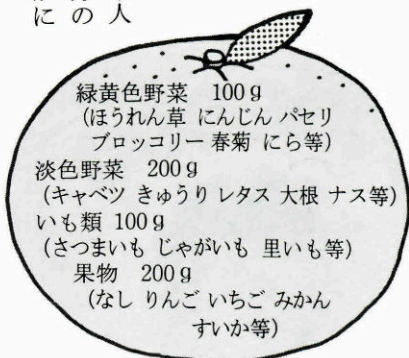 人
の
に
緑黄色野菜 100g
(ほうれん草 にんじん パセリ
ブロッコリー 春菊 にら等)
淡色野菜 200g
(キャベツ きゅうり レタス 大根 ナス等)
いも類 100g
(さつまいも じゃがいも 里いも等)
果物 200g
(なし りんご いちご みかん
すいか等)